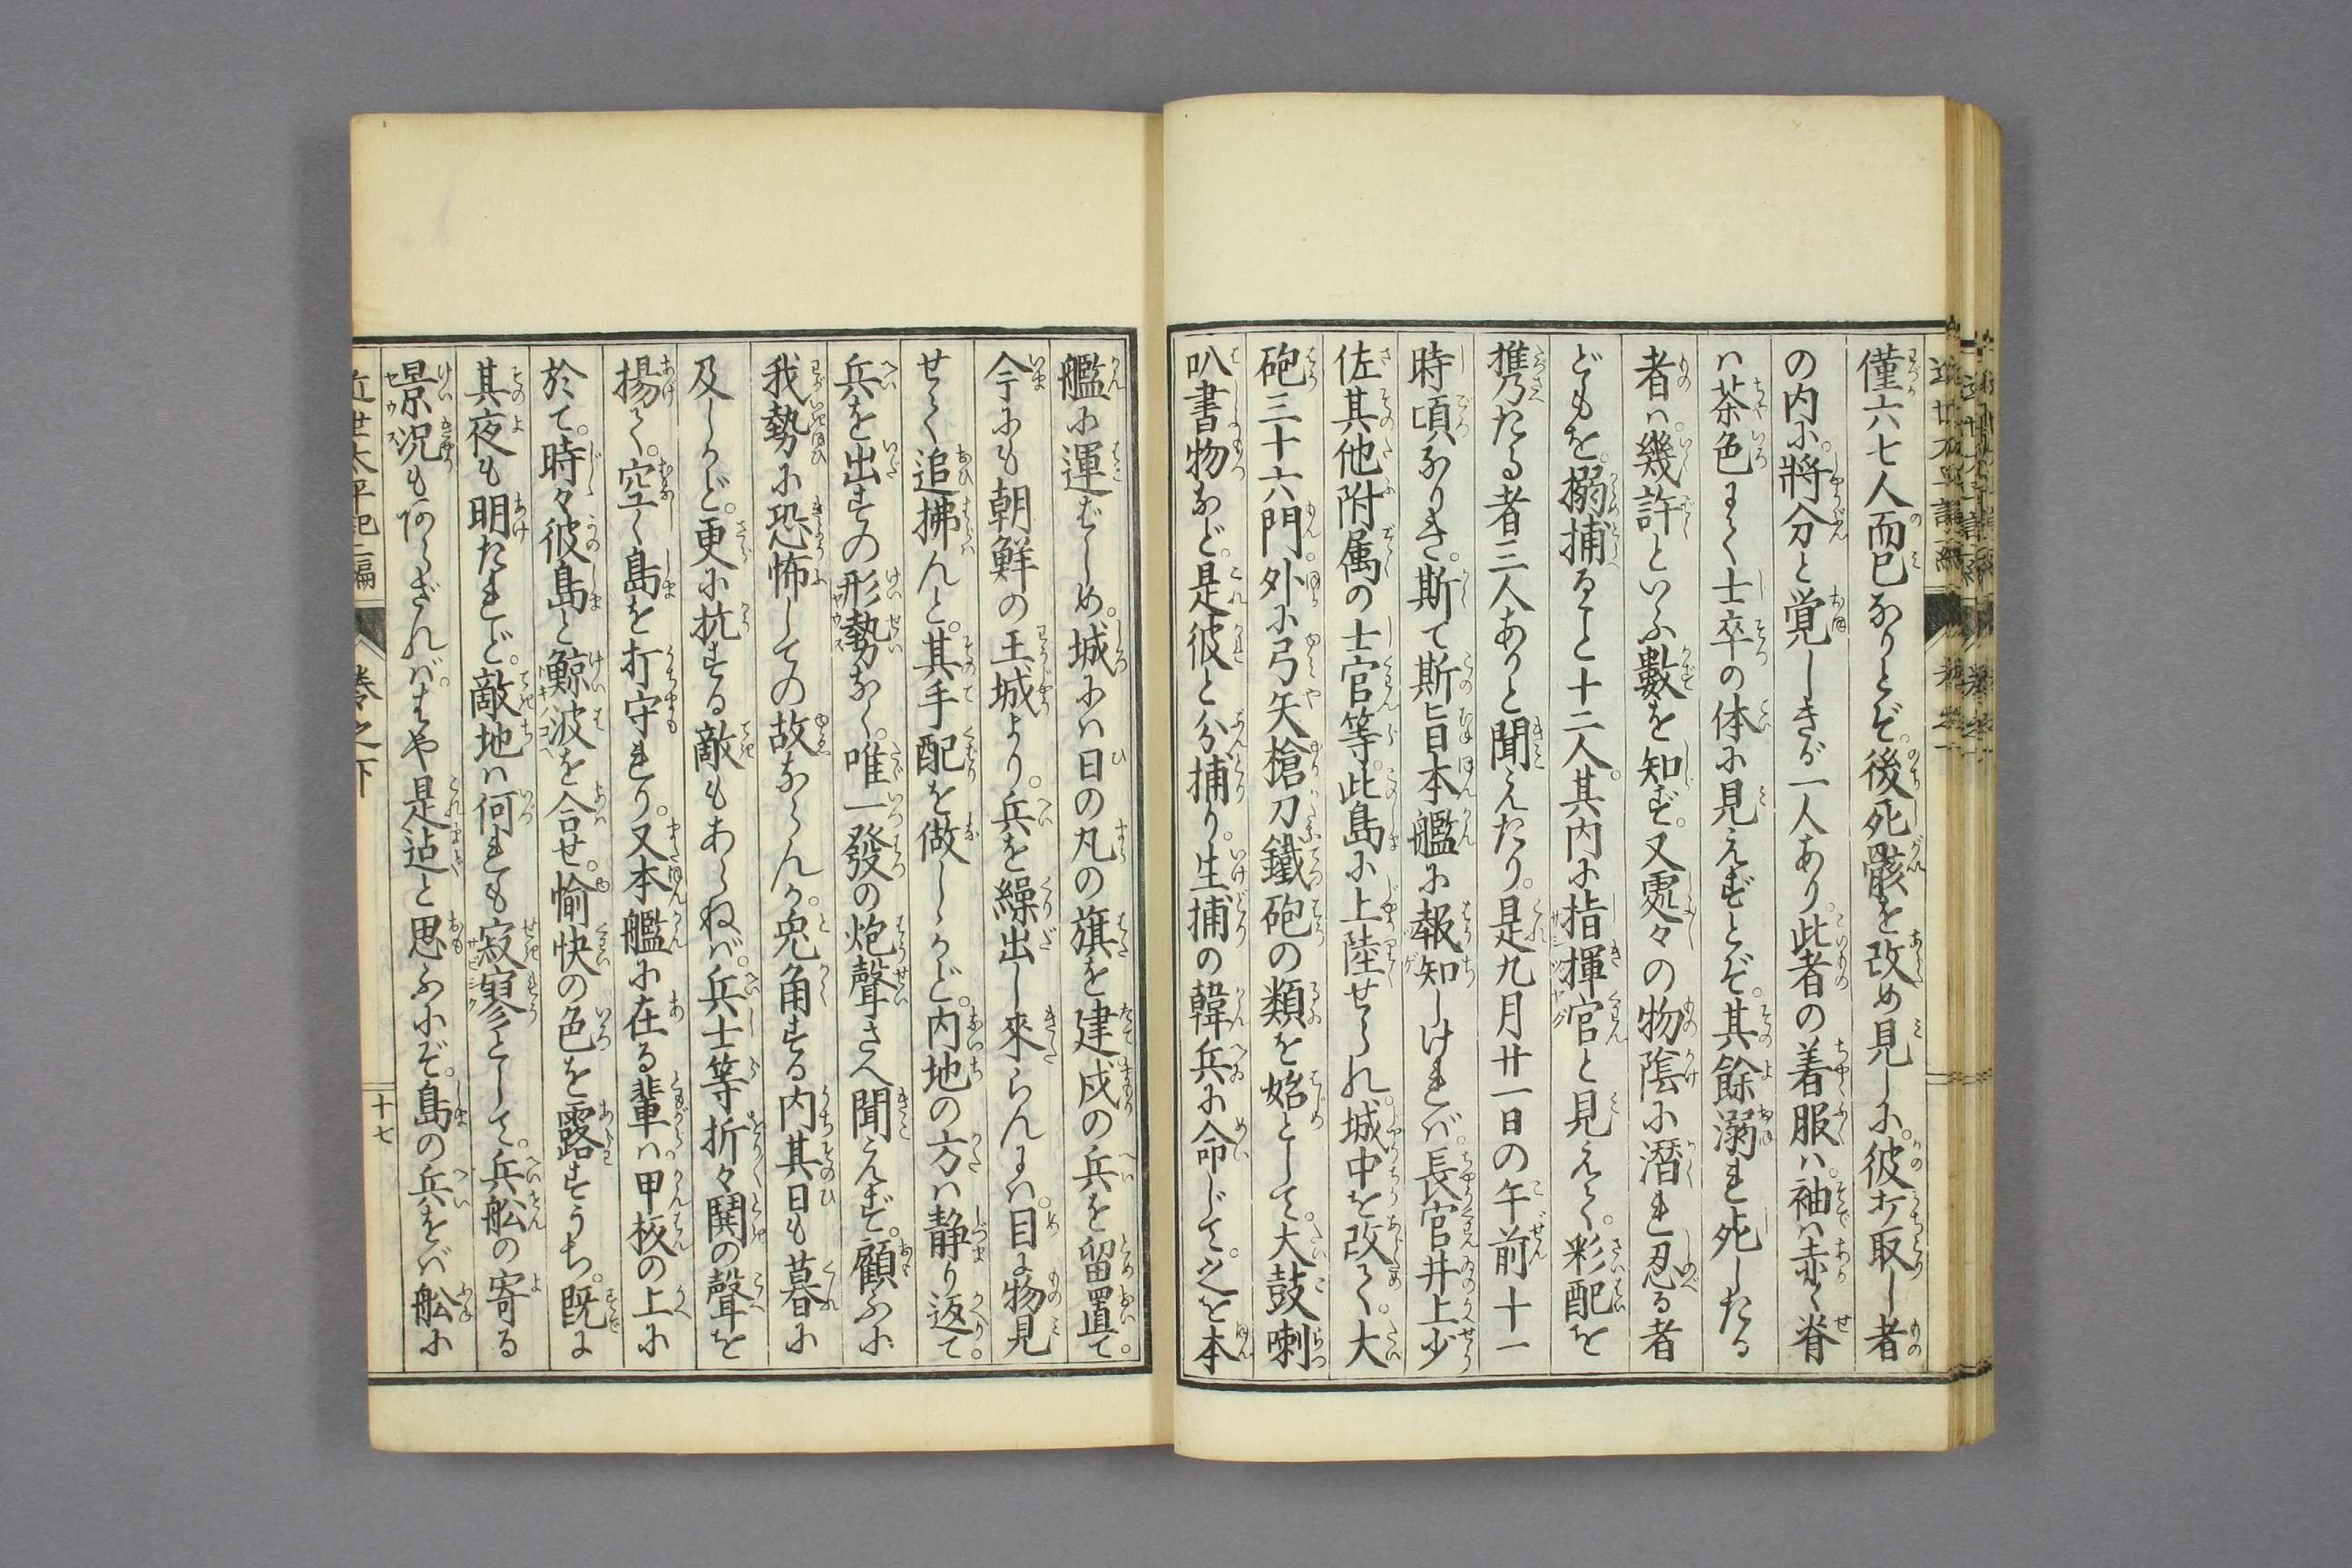 僅六七人而已ありとぞ。後死骸を改め見しに。彼打取し者
の内に。將分と覚しきが一人あり。此者の着服ハ。袖ハ赤く脊
ハ茶色にて士卒の体に見えずとぞ。其餘溺れ死したる
者ハ。幾許といふ數を知ず。又處々の物陰に潛れ忍る者
どもを。搦捕ること十二人。其内に指揮官と見えて。彩配を
携乃たる者三人ありと聞えたり。是九月廿一日の午前十一
時頃ありき。斯て斯旨本艦に報知しけれバ。長官井上少
佐其他附属の士官等。此島に上陸せられ。城中を改て。大
砲三十六門。外に弓矢槍刀鐵砲の類を始として。大鼓喇
叭書物あど。是彼と分捕り。生捕の韓兵に命じて。之を本
艦に運ばしめ。城にハ日の丸の旗を建。戍の兵を留置て。
今にも朝鮮の王城より。兵を繰出し來らんにハ。目に物見
せて追拂んと。其手配を做しゝかど。内地の方ハ静り返て。
兵を出すの形勢あく。唯一發の炮聲さへ聞えず。顧ふに
我勢に恐怖しての故あらんか。兎角する内其日も暮に
及しかど。更に抗する敵もあらねバ。兵士等折々鬨の聲を
揚て。空く島を打守れり。又本艦に在る輩ハ。甲板の上に
於て。時々彼島と鯨波を合せ。愉快の色を露すうち。既に
其夜も明たれど。敵地ハ何れも寂寥として。兵舩の寄る
景況もあらざれバ。もはや是迠と思ふにぞ。島の兵をバ舩に
近世太平記二編 巻之下 十七